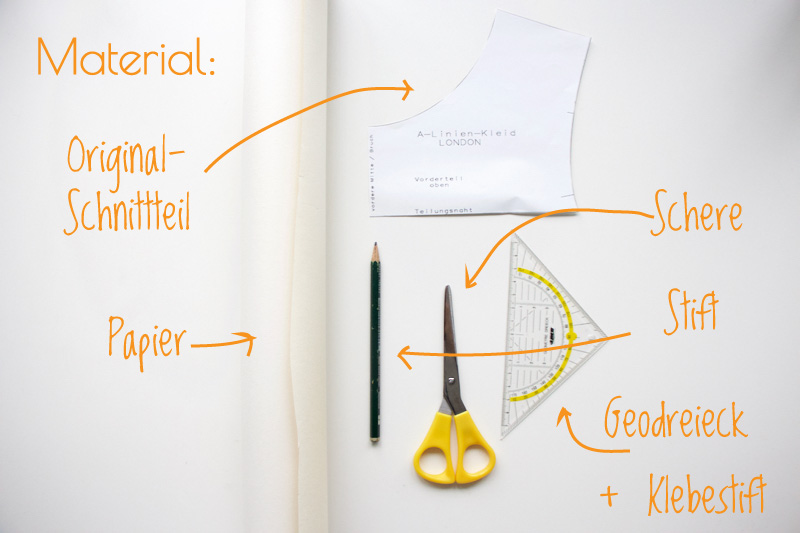 Material:
Original-
Schnittteil
A-Linien-Kleid
LONDON
vordere Mitte / Bruch
Vorderteil
oben
Teilungsnaht
Schere
Stift
Papier
Geodreieck
+ Klebestift